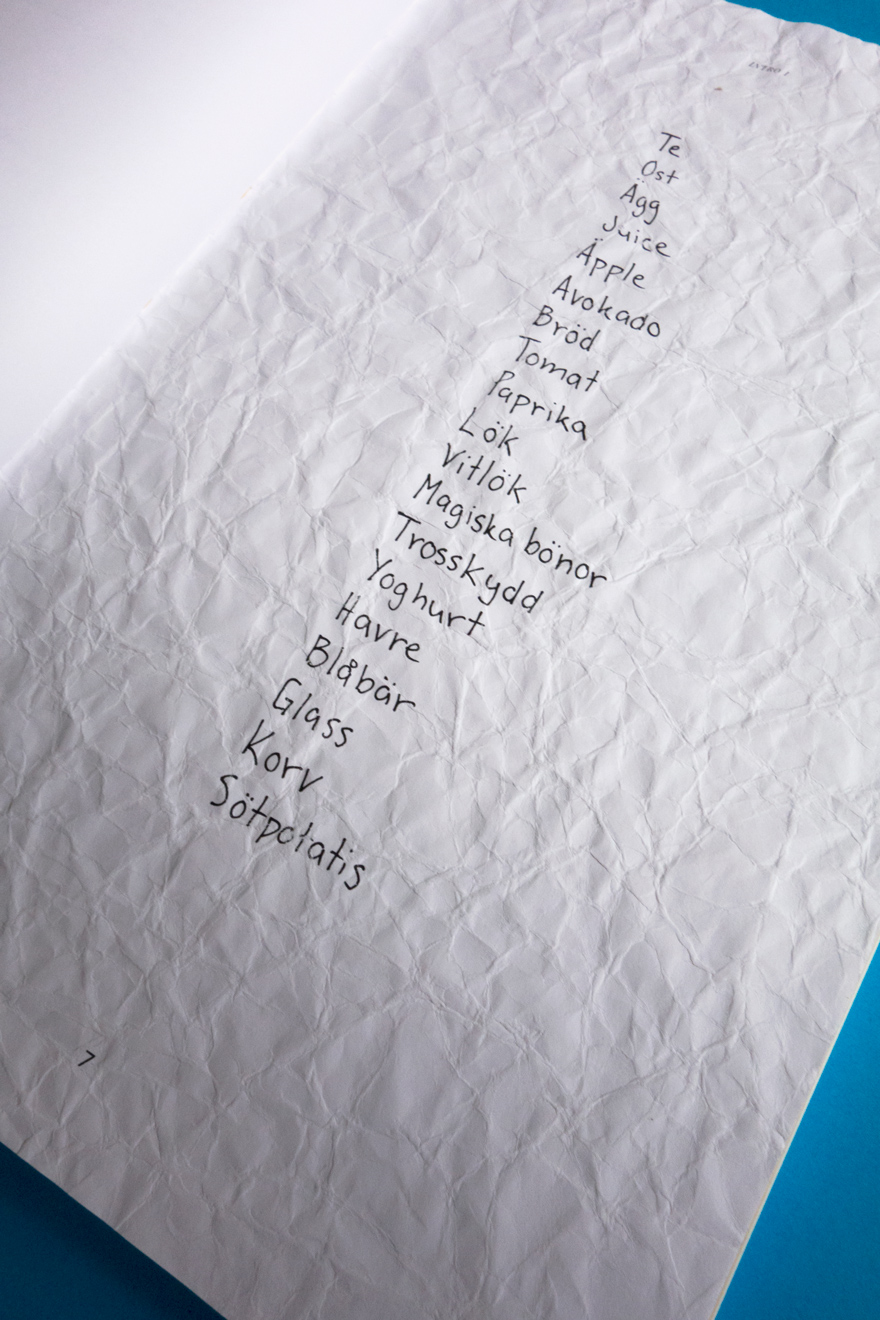 INTRO /
Te
Ost
Ägg
Juice
Äpple
Avokado
Bröd
Tomat
Paprika
Lök
Vitlök
Magiska bönor
Trosskydd
Yoghurt
Havre
Blåbär
Glass
Korv
Sötpotatis
7